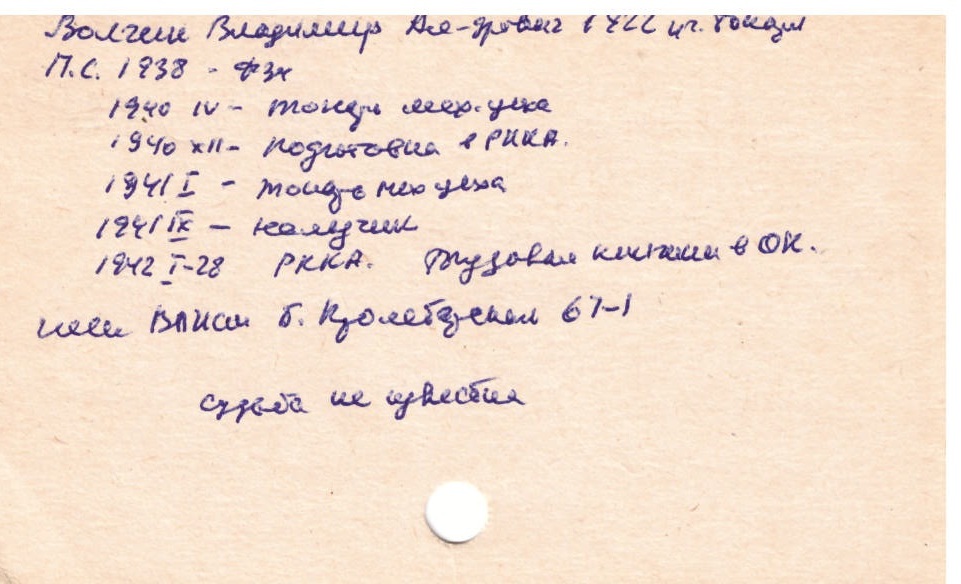 Волчек Владимир Ал-дрович 1922 уч. токаря
П.С. 1938 - ФЗУ
1940 IV - токарь мех. цеха
1940 XII - подготовка в РККА.
1941 I - токарь мех цеха
1941 IX - наладчик
1942 I-28 РККА. Трудовая книжка в ОК.
член ВЛКСМ Б. Пролетарская 67-1
судьба не известна